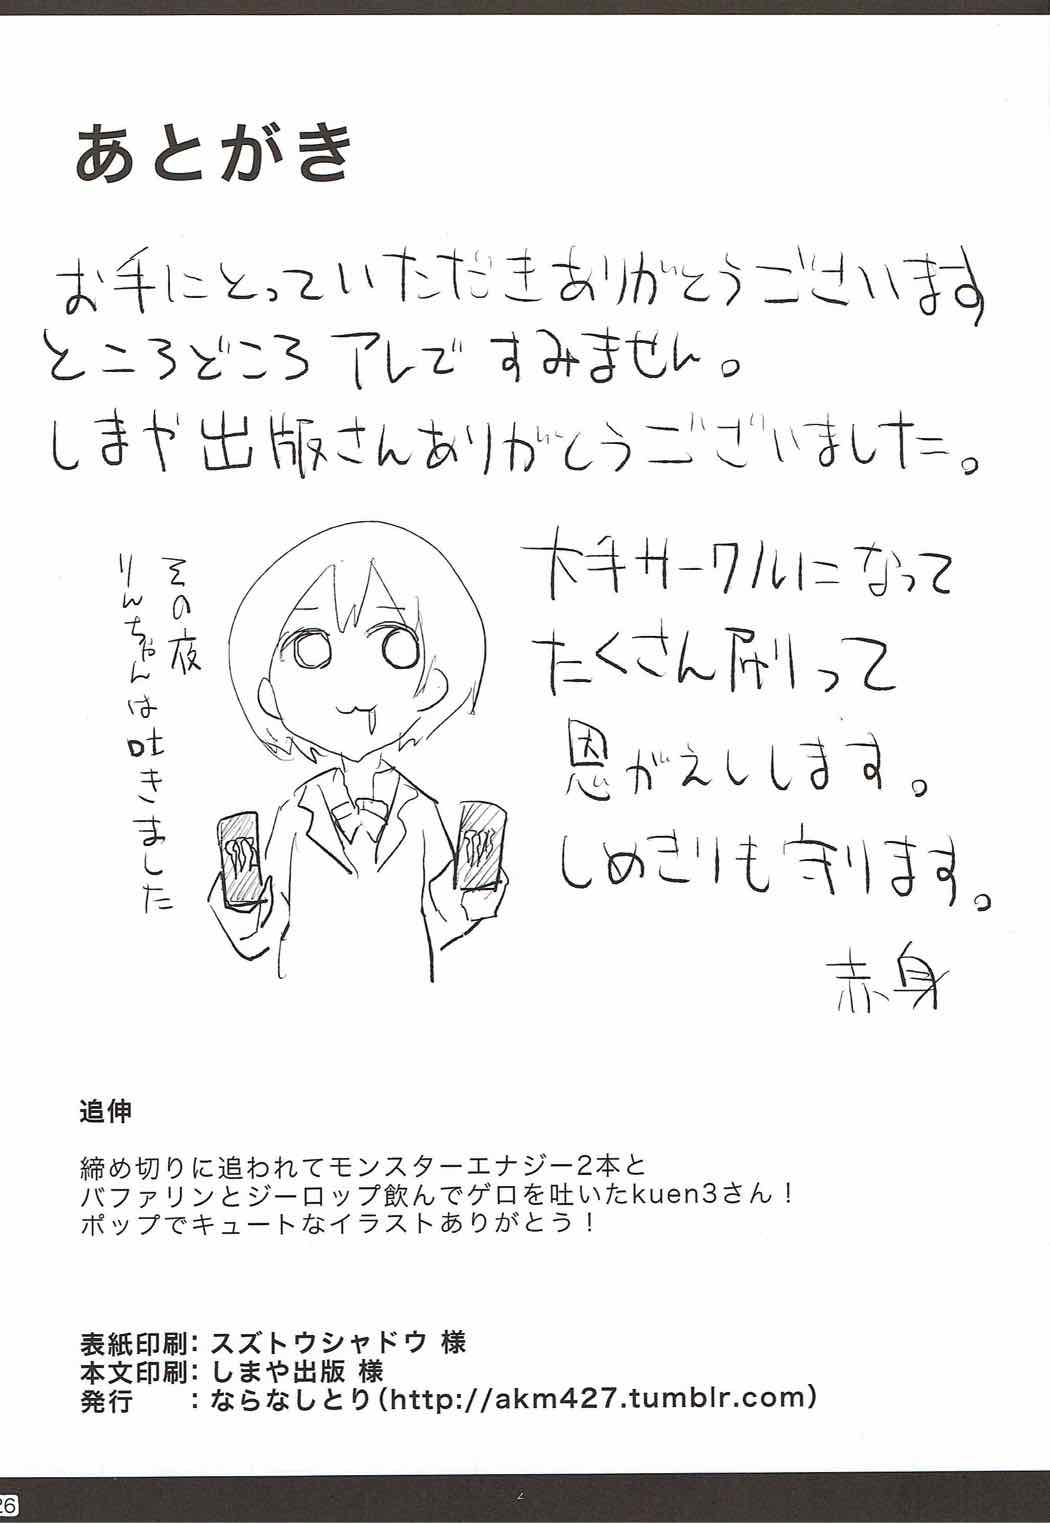 あとがき
お手にとっていただきありがとうございます
ところどころアレですみません。
しまや出版さんありがとうございました。
大手サークルになって
たくさん刷って
恩がえしします。
しめきりも守ります。
赤身
その夜
りんちゃんは吐きました
追伸
締め切りに追われてモンスターエナジー2本と
バファリンとジーロップ飲んでゲロを吐いたkuen3さん！
ポップでキュートなイラストありがとう！
表紙印刷：スズトウシャドウ 様
本文印刷：しまや出版 様
発行　　：ならなしとり(http://akm427.tumblr.com)
26